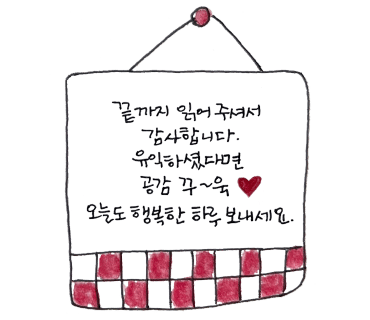 끝까지 읽어 주셔서
감사합니다.
유익하셨다면
공감 꾸~욱 ♥
오늘도 행복한 하루 보내세요.